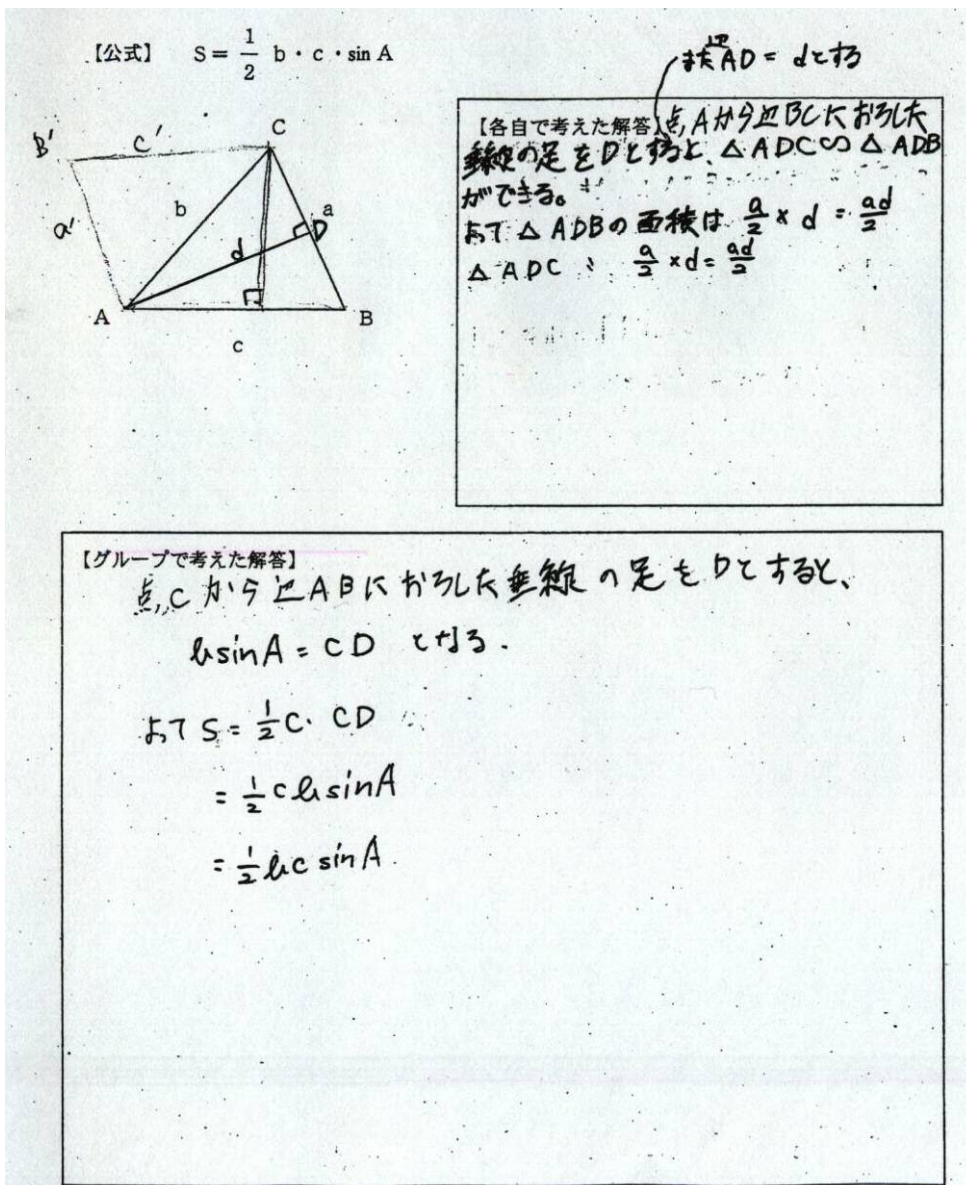 【公式】 S = 1/2 b・c・sin A
B'
C'
C
b
a
a'
d
D
A
B
c
また辺AD = dとする
【各自で考えた解答】点Aから辺BCにおろした
垂線の足をDとすると、△ADC∽△ADB
ができる。
よって △ADBの面積は a/2 × d = ad/2
△ADC 〃 a/2 × d = ad/2
【グループで考えた解答】
点Cから辺ABにおろした垂線の足をDとすると、
bsinA = CD となる.
よって S = 1/2 c・CD
= 1/2 c b sinA
= 1/2 bc sinA.